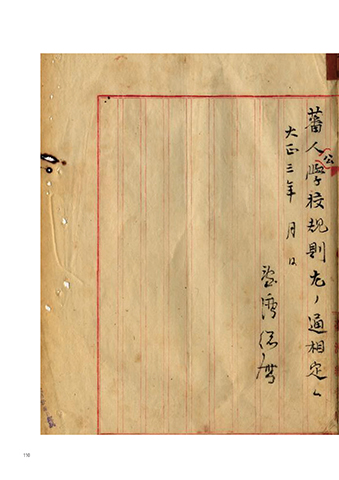 蕃人公學校規則左ノ通相定ム
大正三年 月 日
臺灣総督
150